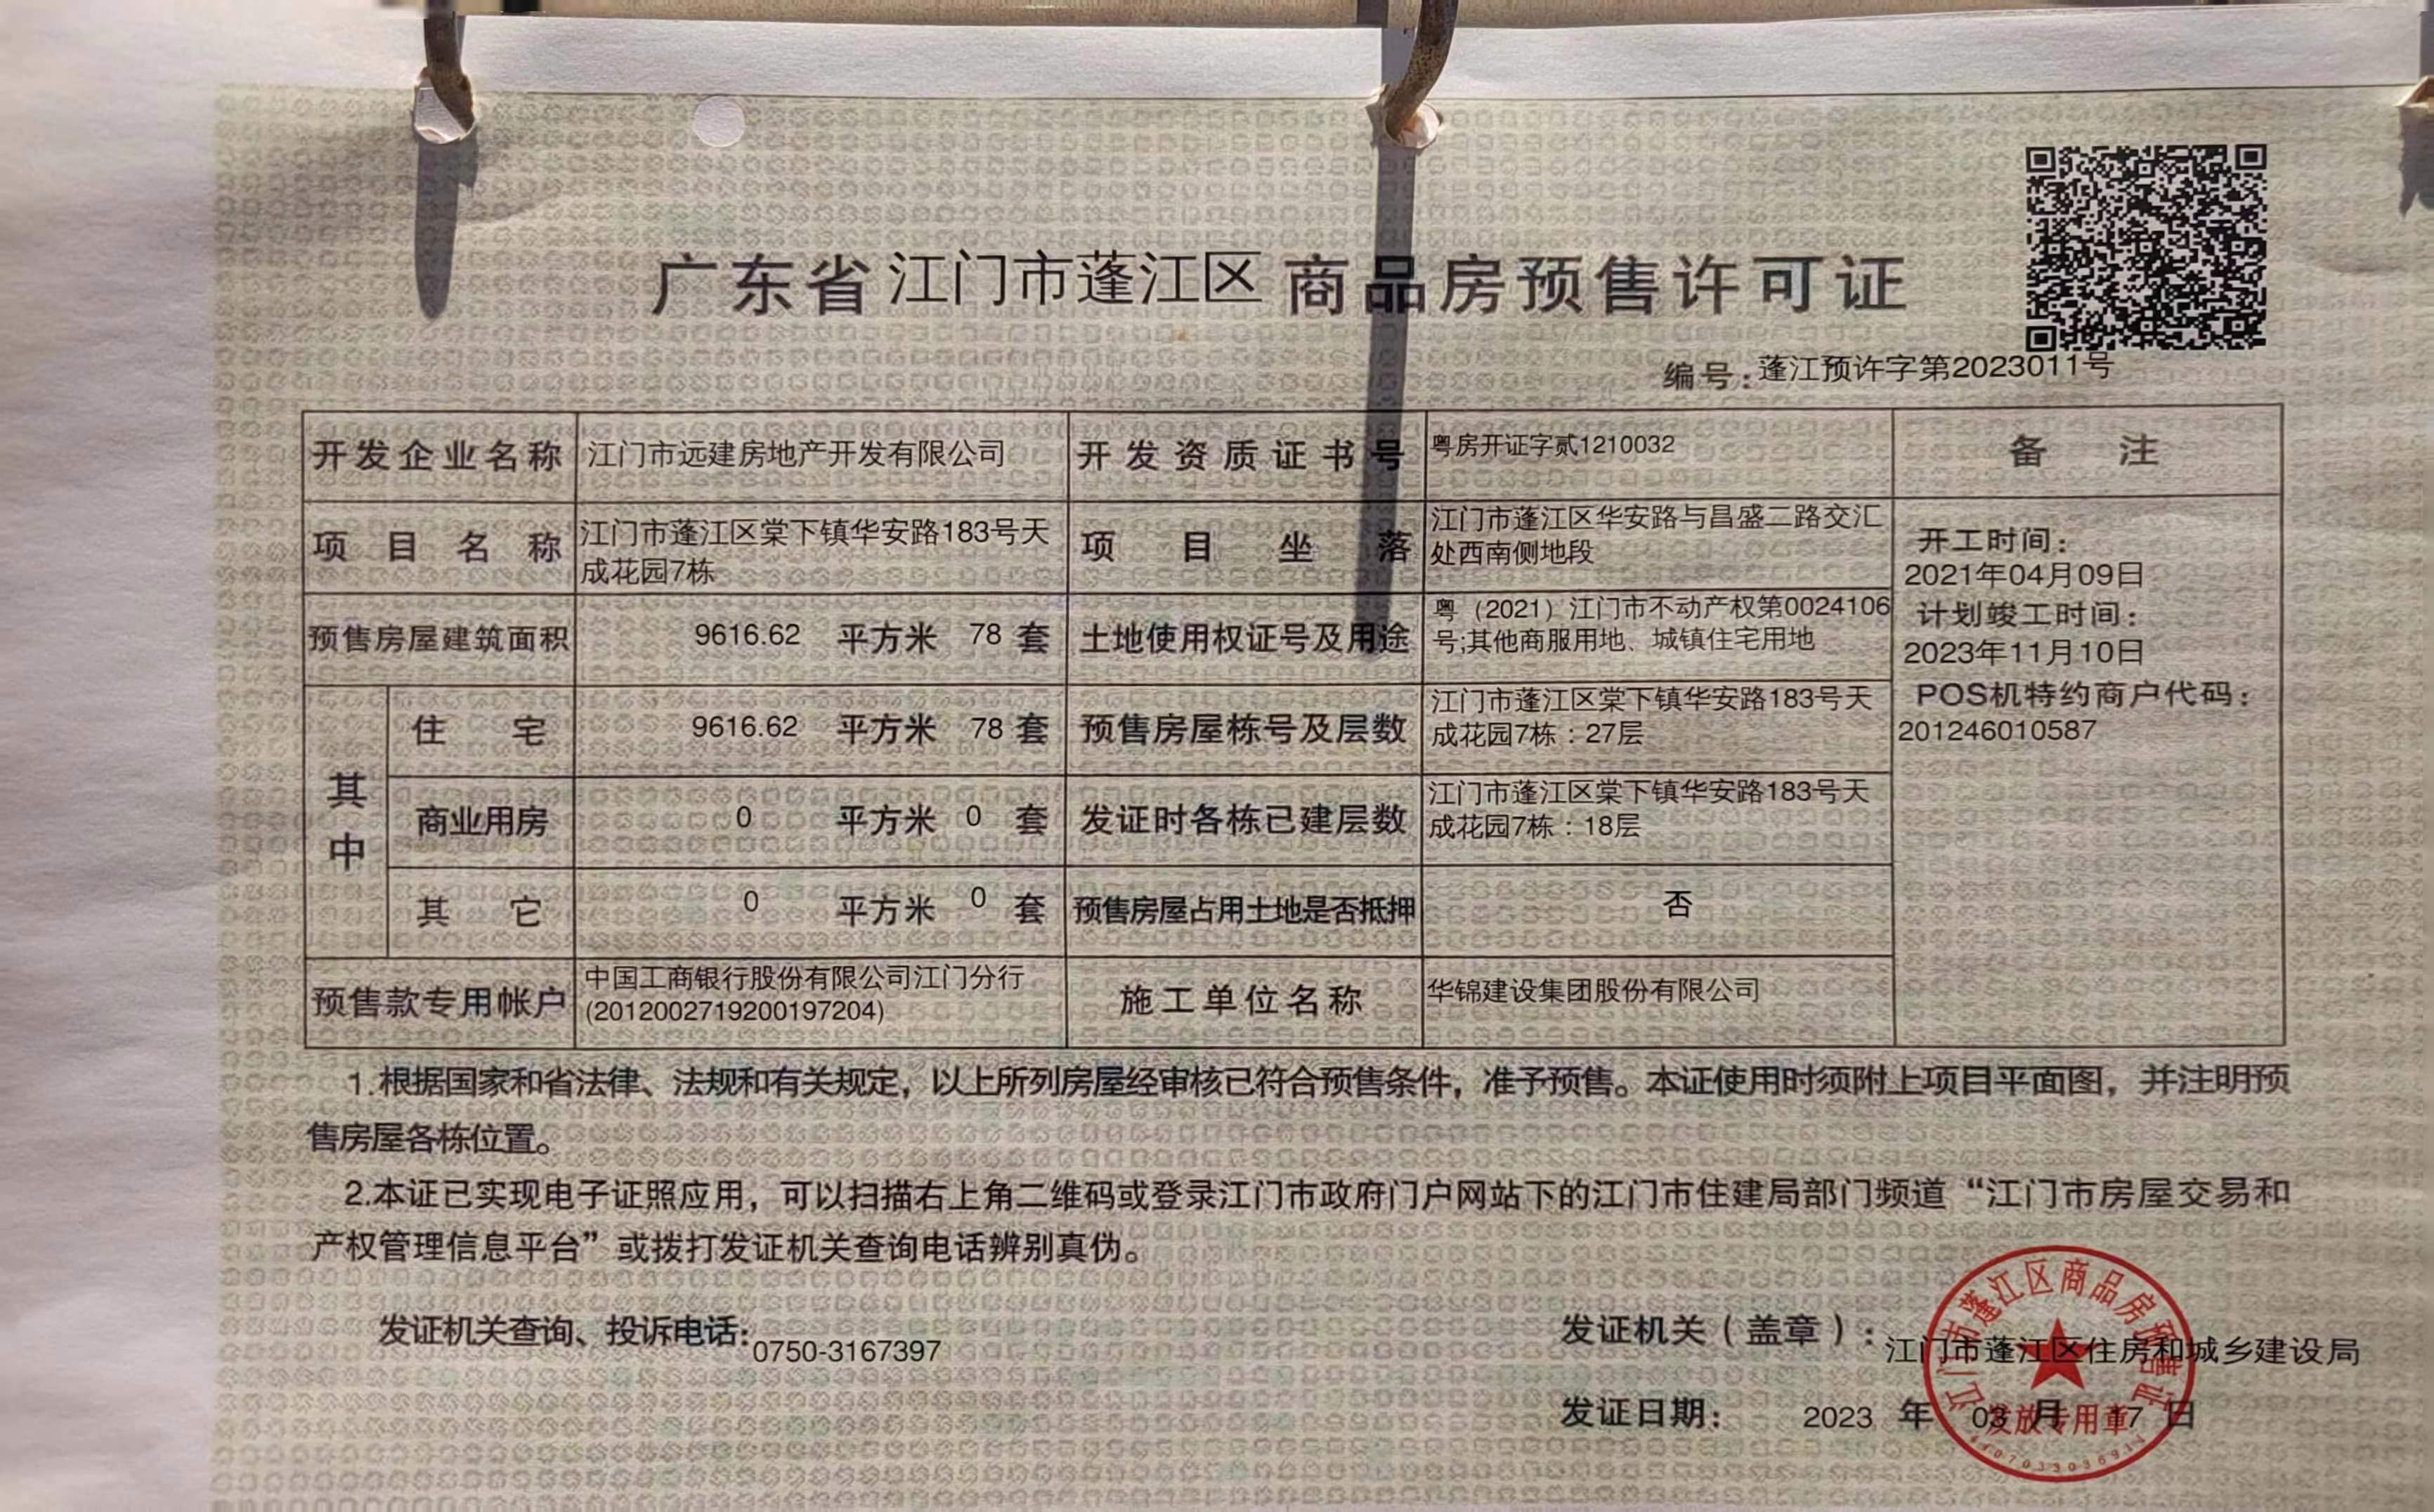 广东省江门市蓬江区商品房预售许可证
编号:蓬江预许字第2023011号
开发企业名称 江门市远建房地产开发有限公司 开发资质证书号 粤房开证字贰1210032 备注
项目名称 江门市蓬江区棠下镇华安路183号天
成花园7栋
项目坐落 江门市蓬江区华安路与昌盛二路交汇
处西南侧地段
开工时间:
2021年04月09日
计划竣工时间:
2023年11月10日
POS机特约商户代码:
201246010587
预售房屋建筑面积 9616.62 平方米 78 套
土地使用权证号及用途 粤（2021）江门市不动产权第0024106
号;其他商服用地、城镇住宅用地
其中
住宅 9616.62 平方米 78 套
预售房屋栋号及层数 江门市蓬江区棠下镇华安路183号天
成花园7栋：27层
商业用房 0 平方米 0 套
发证时各栋已建层数 江门市蓬江区棠下镇华安路183号天
成花园7栋：18层
其它 0 平方米 0 套
预售房屋占用土地是否抵押 否
预售款专用帐户 中国工商银行股份有限公司江门分行
(2012002719200197204)
施工单位名称 华锦建设集团股份有限公司
1.根据国家和省法律、法规和有关规定，以上所列房屋经审核已符合预售条件，准予预售。本证使用时须附上项目平面图，并注明预
售房屋各栋位置。
2.本证已实现电子证照应用，可以扫描右上角二维码或登录江门市政府门户网站下的江门市住建局部门频道“江门市房屋交易和
产权管理信息平台”或拨打发证机关查询电话辨别真伪。
发证机关查询、投诉电话:0750-3167397
发证机关（盖章）:江门市蓬江区住房和城乡建设局
发证日期: 2023 年 03 月 17 日
江门市蓬江区商品房预售证
发放专用章